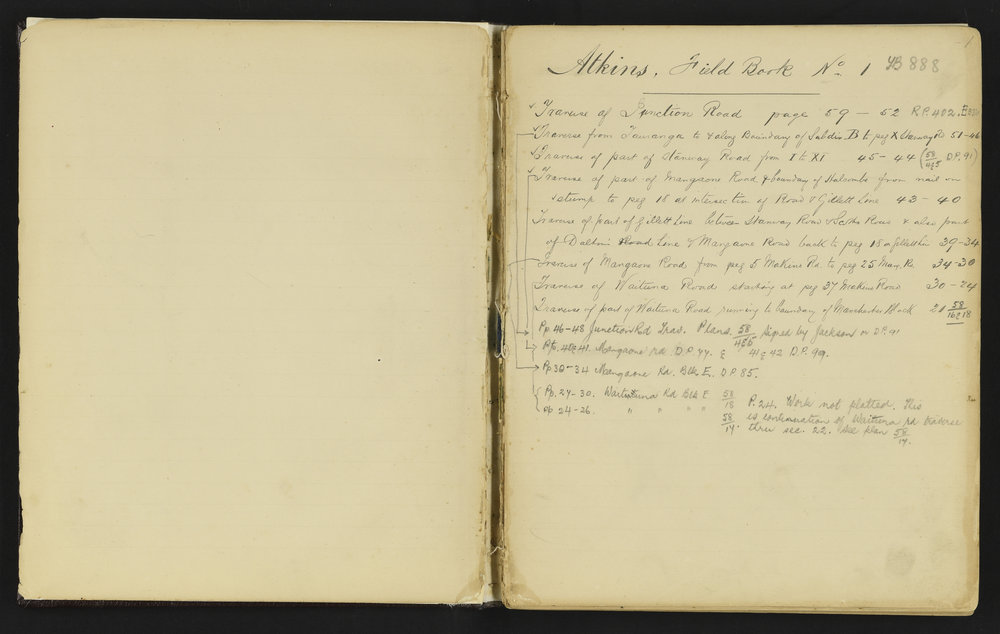 Atkins. Field Book No 1 YB 888
Traverse of Junction Road page 59 – 52 R.P. 402.
Traverse from Towanga to & along Boundary of Subdiv. B to peg X Stanway Rd 51-46
Traverse of part of Stanway Road from I to XI 45 – 44 (58/4&5 D.P. 91)
Traverse of part of Mangaone Road & boundary of Halcombe from nail in
stump to peg 18 at intersection of Road & Gillett Line 43 – 40
Traverse of part of Gillett Line between Stanway Road & Scotts Road & also part
of Road Line & Mangaone Road back to peg 18 Gillett Ln 39-34
Traverse of Mangaone Road from peg 5 Makino Rd. to peg 25 Man. Rd. 34-30
Traverse of Waituna Road starting at peg 37 Makino Road 30 – 24
Traverse of part of Waituna Road running to boundary of Manchester Block 21 58/16&18
Pp. 46-48 Junction Rd Trav. Plans. 58/4&5 signed by Jackson on D.P. 91
Pp. 40 & 41. Mangaone rd. D.P. 77. & 41 & 42 D.P. 99.
Pp 30-34 Mangaone Rd. Blk E. D.P. 85.
Pp. 27-30. Waituna Rd Blk E 58/18 P. 24. Work not platted. This
pp. 24-26. " " " " 58/17. is continuation of Waituna rd traverse
thru sec. 22. See plan 58/17.